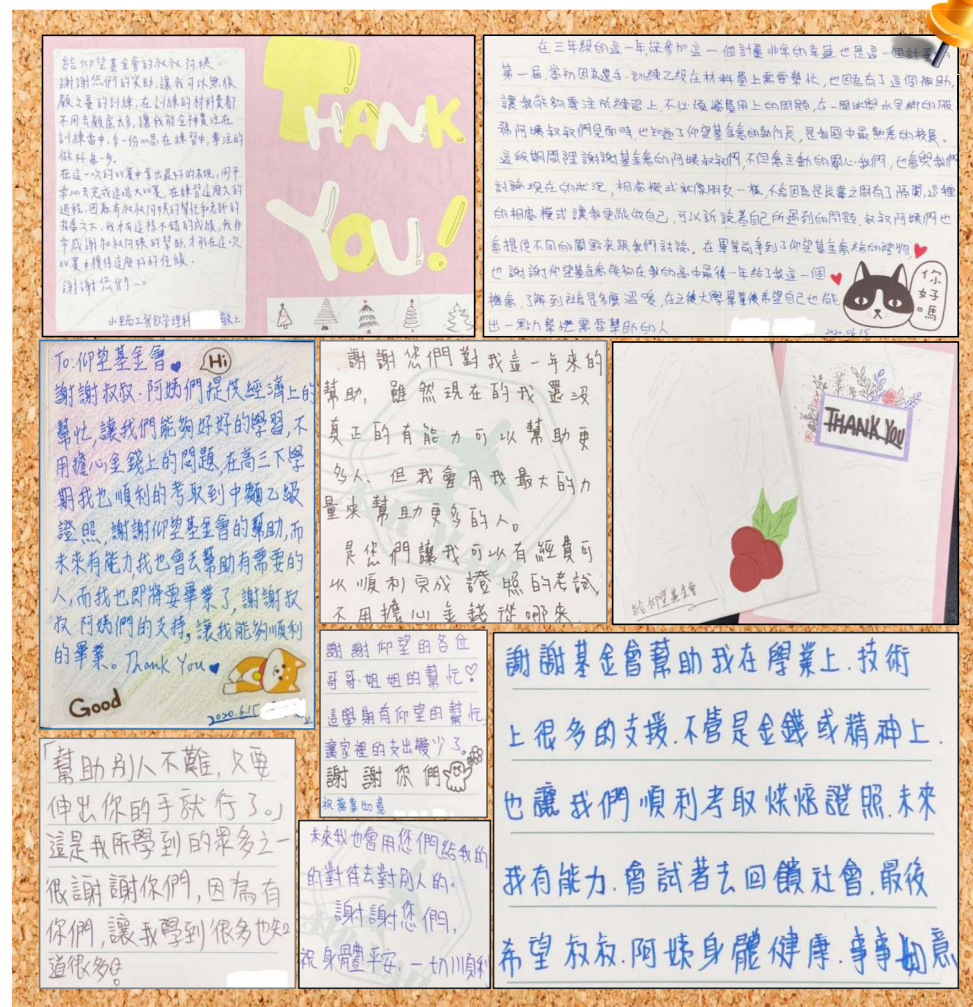 給仰望基金會的叔叔阿姨:
謝謝您們的幫助,讓我可以無後
顧之憂的訓練,在訓練的材料費都
不用去顧慮太多,讓我能全神貫注在
訓練當中,多一份心思在練習中,專注的
做好每一步。
在這一次的比賽中拿出最好的表現,用平
常心去完成這場大比賽,在練習這麼久的
過程,因為有叔叔阿姨的幫忙和老師的
指導之下,我才有這樣不錯的成績,我非
常感謝叔叔阿姨的幫助,才能在這次
比賽中獲得這麼好的佳績。
謝謝您們~~
敬上
THANK
YOU!
在三年級的這一年,從參加這一個計畫非常的幸運也是這一個計畫
第一屆,當初因為選手訓練乙級在材料費上需要幫忙,也因為有了這個補助,
讓我能夠專注於練習上,不必煩惱費用上的問題,在一開始
阿姨叔叔們見面時也知道了仰望基金會的執行長,是我國中最熟悉的校長。
這段期間裡謝謝基金會的阿姨叔叔們,不但會主動的關心我們,也會與我們
討論現在的狀況,相處模式就像朋友一樣,不會因為是長輩之間有了隔閡,這樣
的相處模式讓我更能做自己,可以訴說著自己所遇到的問題,叔叔阿姨們也
會提供不同的觀點來跟我們討論。在畢業前拿到了仰望基金會給的禮物,
也謝謝仰望基金會能夠在我的高中最後一年給了我這一個
機會,了解到社會是多麼溫暖,在之後大學畢業後希望自己也能
出一點力幫忙需要幫助的人
你好嗎
2020.06.15
To:仰望基金會
Hi
謝謝叔叔、阿姨們提供經濟上的
幫忙,讓我們能夠好好的學習,不
用擔心金錢上的問題,在高三下學
期我也順利的考取到中麵乙級
證照,謝謝仰望基金會的幫助,而
未來有能力我也會去幫助有需要的
人,而我也即將要畢業了,謝謝叔
叔、阿姨們的支持,讓我能夠順利
的畢業。Thank You
Good
2020.6.15
謝謝您們對我這一年來的
幫助,雖然現在的我還沒
真正的有能力可以幫助更
多人,但我會用我最大的力
量來幫助更多的人。
是您們讓我可以有經費可
以順利完成證照的考試
不用擔心金錢從哪來
THANK YOU
給仰望基金會
謝謝仰望的各位
哥哥、姐姐的幫忙♡
這學期有仰望的幫忙
讓家裡的支出變少了。
謝謝你們
祝萬事如意
謝謝基金會幫助我在學業上、技術
上很多的支援,不管是金錢或精神上,
也讓我們順利考取烘焙證照,未來
我有能力,會試著去回饋社會,最後
希望叔叔、阿姨身體健康,事事如意
「幫助別人不難,只要
伸出你的手就行了。」
這是我所學到的眾多之一
很謝謝你們,因為有
你們,讓我學到很多也知
道很多
未來我也會用您們給我的
的對待去對別人的。
謝謝您們,
祝身體平安,一切順利